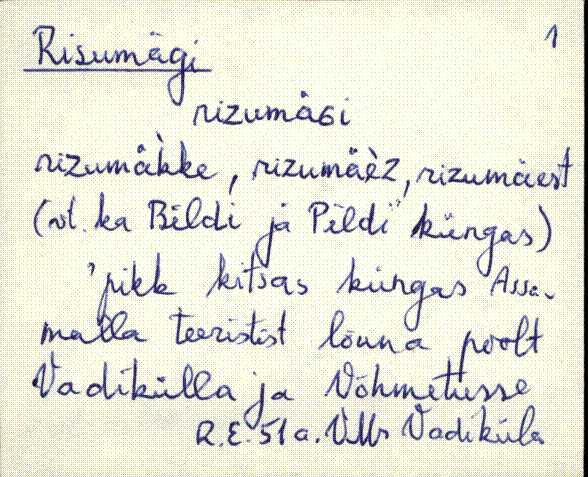 Risumägi 1
rizumäGi
rizumäk̀ke, rizumäèz, rizumäest
(vt. ka Bildi ja Pildi küngas)
'pikk kitsas küngas Assa-
malla teeristist lõuna poolt
Vadikülla ja Võhmetusse
R.E. 51 a. VMr Vadiküla